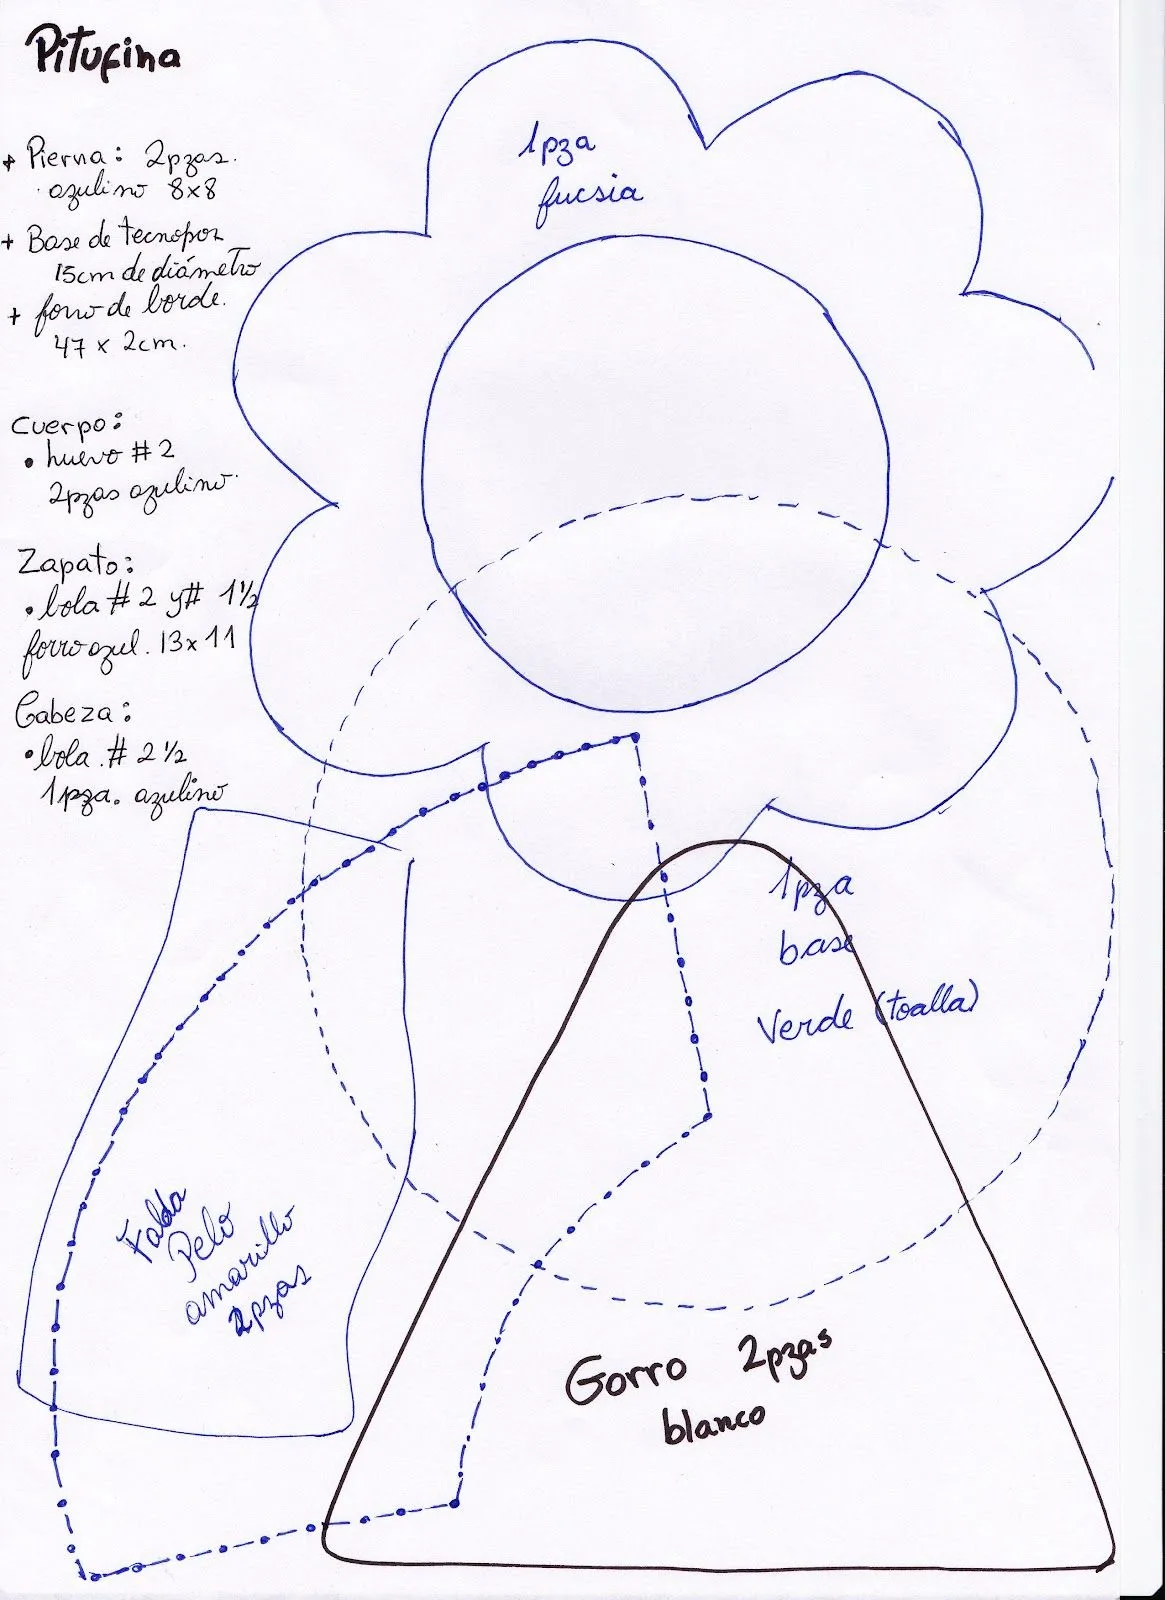 Pitufina
+ Pierna: 2pzas.
azulino 8x8
+ Base de tecnopor
15cm de diámetro
+ forro de borde.
47 x 2cm.
Cuerpo:
• huevo # 2
2pzas azulino.
Zapato:
• bola # 2 y # 1½
forro azul. 13x11
Cabeza:
• bola. # 2 ½
1pza. azulino
1pza
fucsia
1pza
base
Verde (toalla)
Falda
Pelo
amarillo
2pzas
Gorro 2pzas
blanco